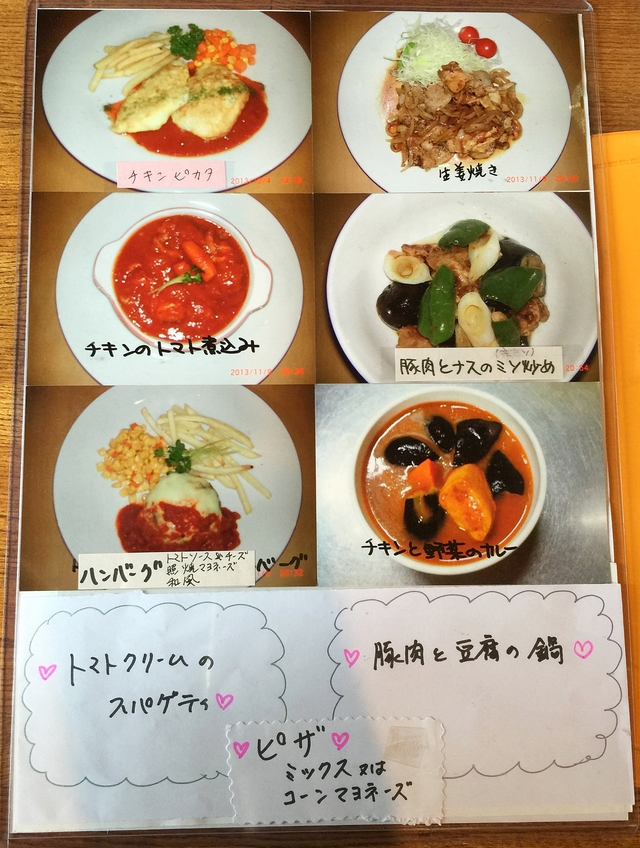 チキンピカタ
生姜焼き
2013/11/
チキンのトマト煮込み
2013/11/
豚肉とナスのミソ炒め
ハンバーグ
トマトソース&チーズ
照焼マヨネーズ
和風
バーグ
チキンと野菜のカレー
トマトクリームの
スパゲティ
豚肉と豆腐の鍋
ピザ
ミックス又は
コーンマヨネーズ